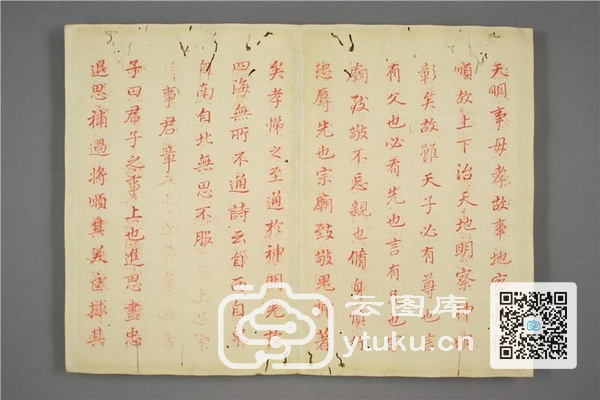 天明事母孝故事地察
順故上下治天地明察
彰矣故雖天子必有尊也言
有父也必有先也言有兄也
廟致敬不忘親也脩身慎
恐辱先也宗廟致敬鬼神著
矣孝悌之至通於神明光於
四海無所不通詩云自西自東
自南自北無思不服
事君章
子曰君子之事上也進思盡忠
退思補過將順其美匡救其
云图库
ytuku.cn